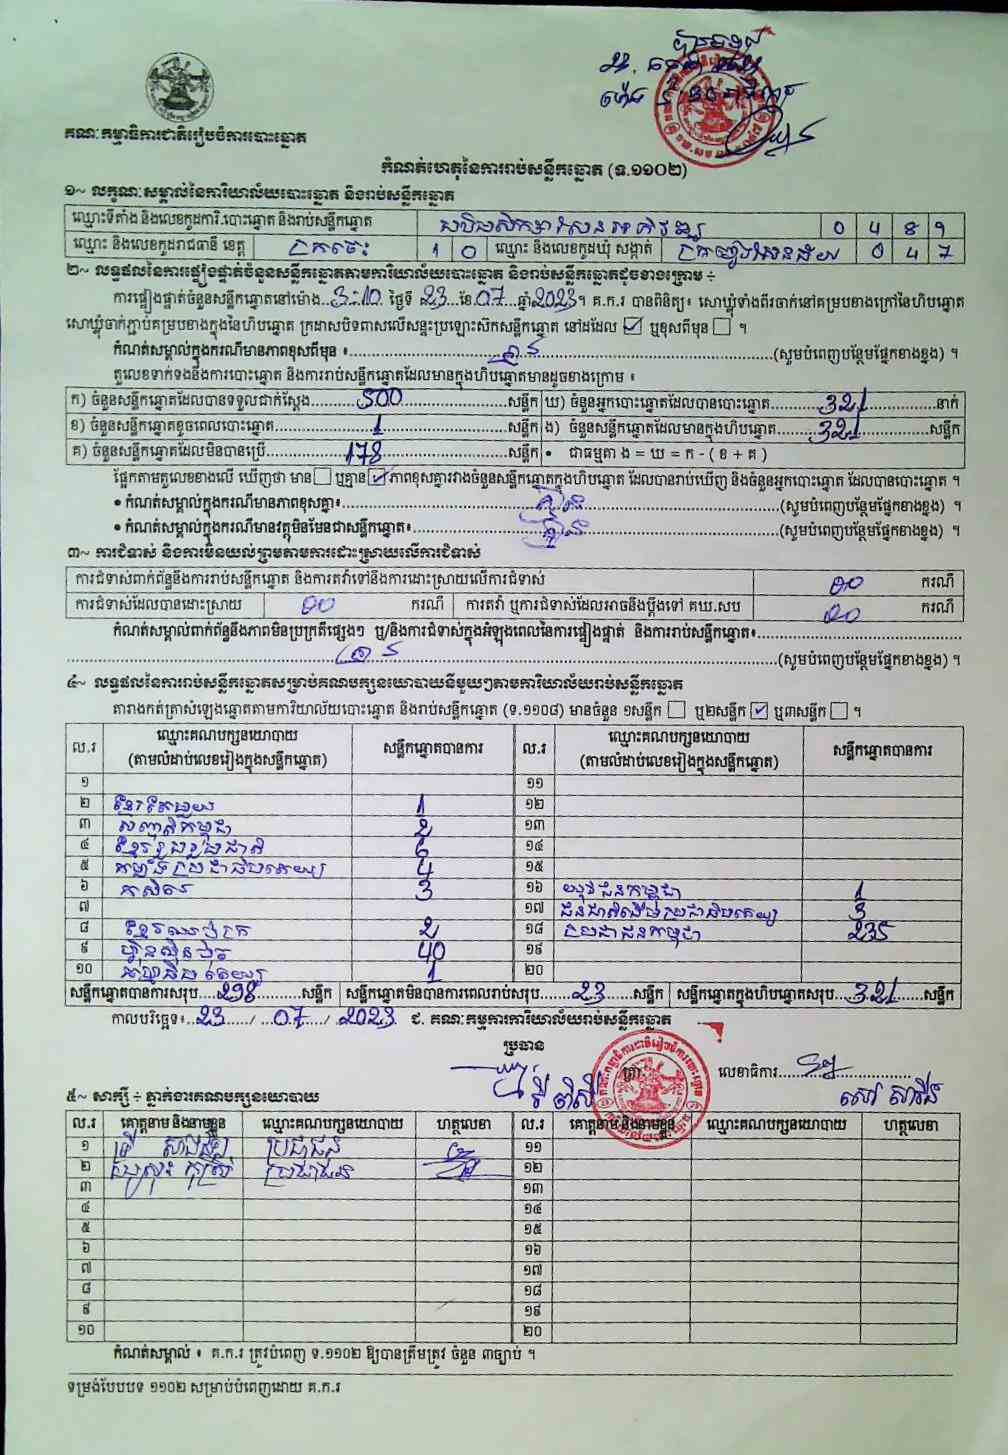 គណៈកម្មាធិការជាតិរៀបចំការបោះឆ្នោត
កំណត់ហេតុនៃការរាប់សន្លឹកឆ្នោត (ទ.១១០២)
១~ លក្ខណៈសម្គាល់នៃការិយាល័យបោះឆ្នោត និងរាប់សន្លឹកឆ្នោត
ឈ្មោះទីតាំង និងលេខកូដការិ.បោះឆ្នោត និងរាប់សន្លឹកឆ្នោត 0 4 8 9
ឈ្មោះ និងលេខកូដរាជធានី ខេត្ត ក្រចេះ 1 0 ឈ្មោះ និងលេខកូដឃុំ សង្កាត់ 0 4 7
២~ លទ្ធផលនៃការផ្ទៀងផ្ទាត់ចំនួនសន្លឹកឆ្នោតតាមការិយាល័យបោះឆ្នោត និងរាប់សន្លឹកឆ្នោតដូចខាងក្រោម ÷
ការផ្ទៀងផ្ទាត់ចំនួនសន្លឹកឆ្នោតនៅម៉ោង..3:10 ថ្ងៃទី 23 ខែ 07 ឆ្នាំ 2023។ គ.ក.រ បានពិនិត្យ៖ សោឃ្លុំទាំងពីរចាក់នៅគម្របខាងក្រៅនៃហិបឆ្នោត
សោឃ្លុំចាក់ភ្ជាប់គម្របខាងក្នុងនៃហិបឆ្នោត ក្រដាសបិទពាសលើសន្ទះប្រឡោះស៊កសន្លឹកឆ្នោត នៅដដែល ☑ ឬខុសពីមុន ☐ ។
កំណត់សម្គាល់ក្នុងករណីមានភាពខុសពីមុន ៖ គ្មាន (សូមបំពេញបន្ថែមផ្នែកខាងខ្នង) ។
តួលេខទាក់ទងនឹងការបោះឆ្នោត និងការរាប់សន្លឹកឆ្នោតដែលមានក្នុងហិបឆ្នោតមានដូចខាងក្រោម ៖
ក) ចំនួនសន្លឹកឆ្នោតដែលបានទទួលជាក់ស្តែង 500 សន្លឹក ឃ) ចំនួនអ្នកបោះឆ្នោតដែលបានបោះឆ្នោត 321 នាក់
ខ) ចំនួនសន្លឹកឆ្នោតខូចពេលបោះឆ្នោត 1 សន្លឹក ង) ចំនួនសន្លឹកឆ្នោតដែលមានក្នុងហិបឆ្នោត 321 សន្លឹក
គ) ចំនួនសន្លឹកឆ្នោតដែលមិនបានប្រើ 178 សន្លឹក • ជាធម្មតា ង = ឃ = ក - ( ខ + គ )
ផ្អែកតាមតួលេខខាងលើ ឃើញថា មាន ☐ ឬគ្មាន ☑ ភាពខុសគ្នារវាងចំនួនសន្លឹកឆ្នោតក្នុងហិបឆ្នោត ដែលបានរាប់ឃើញ និងចំនួនអ្នកបោះឆ្នោត ដែលបានបោះឆ្នោត ។
• កំណត់សម្គាល់ក្នុងករណីមានភាពខុសគ្នា៖ គ្មាន (សូមបំពេញបន្ថែមផ្នែកខាងខ្នង) ។
• កំណត់សម្គាល់ក្នុងករណីមានវត្ថុមិនមែនជាសន្លឹកឆ្នោត៖ គ្មាន (សូមបំពេញបន្ថែមផ្នែកខាងខ្នង) ។
៣~ ការជំទាស់ និងការមិនយល់ព្រមតាមការដោះស្រាយលើការជំទាស់
ការជំទាស់ពាក់ព័ន្ធនឹងការរាប់សន្លឹកឆ្នោត និងការតវ៉ាទៅនឹងការដោះស្រាយលើការជំទាស់ 00 ករណី
ការជំទាស់ដែលបានដោះស្រាយ 00 ករណី ការតវ៉ា ឬការជំទាស់ដែលអាចនឹងប្តឹងទៅ គឃ.សប 00 ករណី
កំណត់សម្គាល់ពាក់ព័ន្ធនឹងភាពមិនប្រក្រតីផ្សេងៗ ឬ/និងការជំទាស់ក្នុងអំឡុងពេលនៃការផ្ទៀងផ្ទាត់ និងការរាប់សន្លឹកឆ្នោត៖
គ្មាន (សូមបំពេញបន្ថែមផ្នែកខាងខ្នង) ។
៤~ លទ្ធផលនៃការរាប់សន្លឹកឆ្នោតសម្រាប់គណបក្សនយោបាយនីមួយៗតាមការិយាល័យរាប់សន្លឹកឆ្នោត
តារាងកត់ត្រាសំឡេងឆ្នោតតាមការិយាល័យបោះឆ្នោត និងរាប់សន្លឹកឆ្នោត (ទ.១១០៨) មានចំនួន ១សន្លឹក ☐ ឬ២សន្លឹក ☑ ឬ៣សន្លឹក ☐ ។
ល.រ ឈ្មោះគណបក្សនយោបាយ (តាមលំដាប់លេខរៀងក្នុងសន្លឹកឆ្នោត) សន្លឹកឆ្នោតបានការ ល.រ ឈ្មោះគណបក្សនយោបាយ (តាមលំដាប់លេខរៀងក្នុងសន្លឹកឆ្នោត) សន្លឹកឆ្នោតបានការ
១ ១១
២ ខ្មែរតែមួយ 1 ១២
៣ សញ្ជាតិកម្ពុជា 2 ១៣
៤ ខ្មែររួបរួមជាតិ 6 ១៤
៥ កម្លាំងប្រជាធិបតេយ្យ 4 ១៥
៦ កសិករ 3 ១៦ យុវជនកម្ពុជា 1
៧ ១៧ 3
៨ 2 ១៨ ប្រជាជនកម្ពុជា 235
៩ ហ៊្វុនស៊ិនប៉ិច 40 ១៩
១០ 1 ២០
សន្លឹកឆ្នោតបានការសរុប 298 សន្លឹក សន្លឹកឆ្នោតមិនបានការពេលរាប់សរុប 23 សន្លឹក សន្លឹកឆ្នោតក្នុងហិបឆ្នោតសរុប 321 សន្លឹក
កាលបរិច្ឆេទ៖ 23 / 07 / 2023 ជ. គណៈកម្មការការិយាល័យរាប់សន្លឹកឆ្នោត
ប្រធាន
ត្រា លេខាធិការ
៥~ សាក្សី ÷ ភ្នាក់ងារគណបក្សនយោបាយ
ល.រ គោត្តនាម និងនាមខ្លួន ឈ្មោះគណបក្សនយោបាយ ហត្ថលេខា ល.រ គោត្តនាម និងនាមខ្លួន ឈ្មោះគណបក្សនយោបាយ ហត្ថលេខា
១ ប្រជាជន ១១
២ ប្រជាជន ១២
៣ ១៣
៤ ១៤
៥ ១៥
៦ ១៦
៧ ១៧
៨ ១៨
៩ ១៩
១០ ២០
កំណត់សម្គាល់ ៖ គ.ក.រ ត្រូវបំពេញ ទ.១១០២ ឱ្យបានត្រឹមត្រូវ ចំនួន ៣ច្បាប់ ។
ទម្រង់បែបបទ ១១០២ សម្រាប់បំពេញដោយ គ.ក.រ